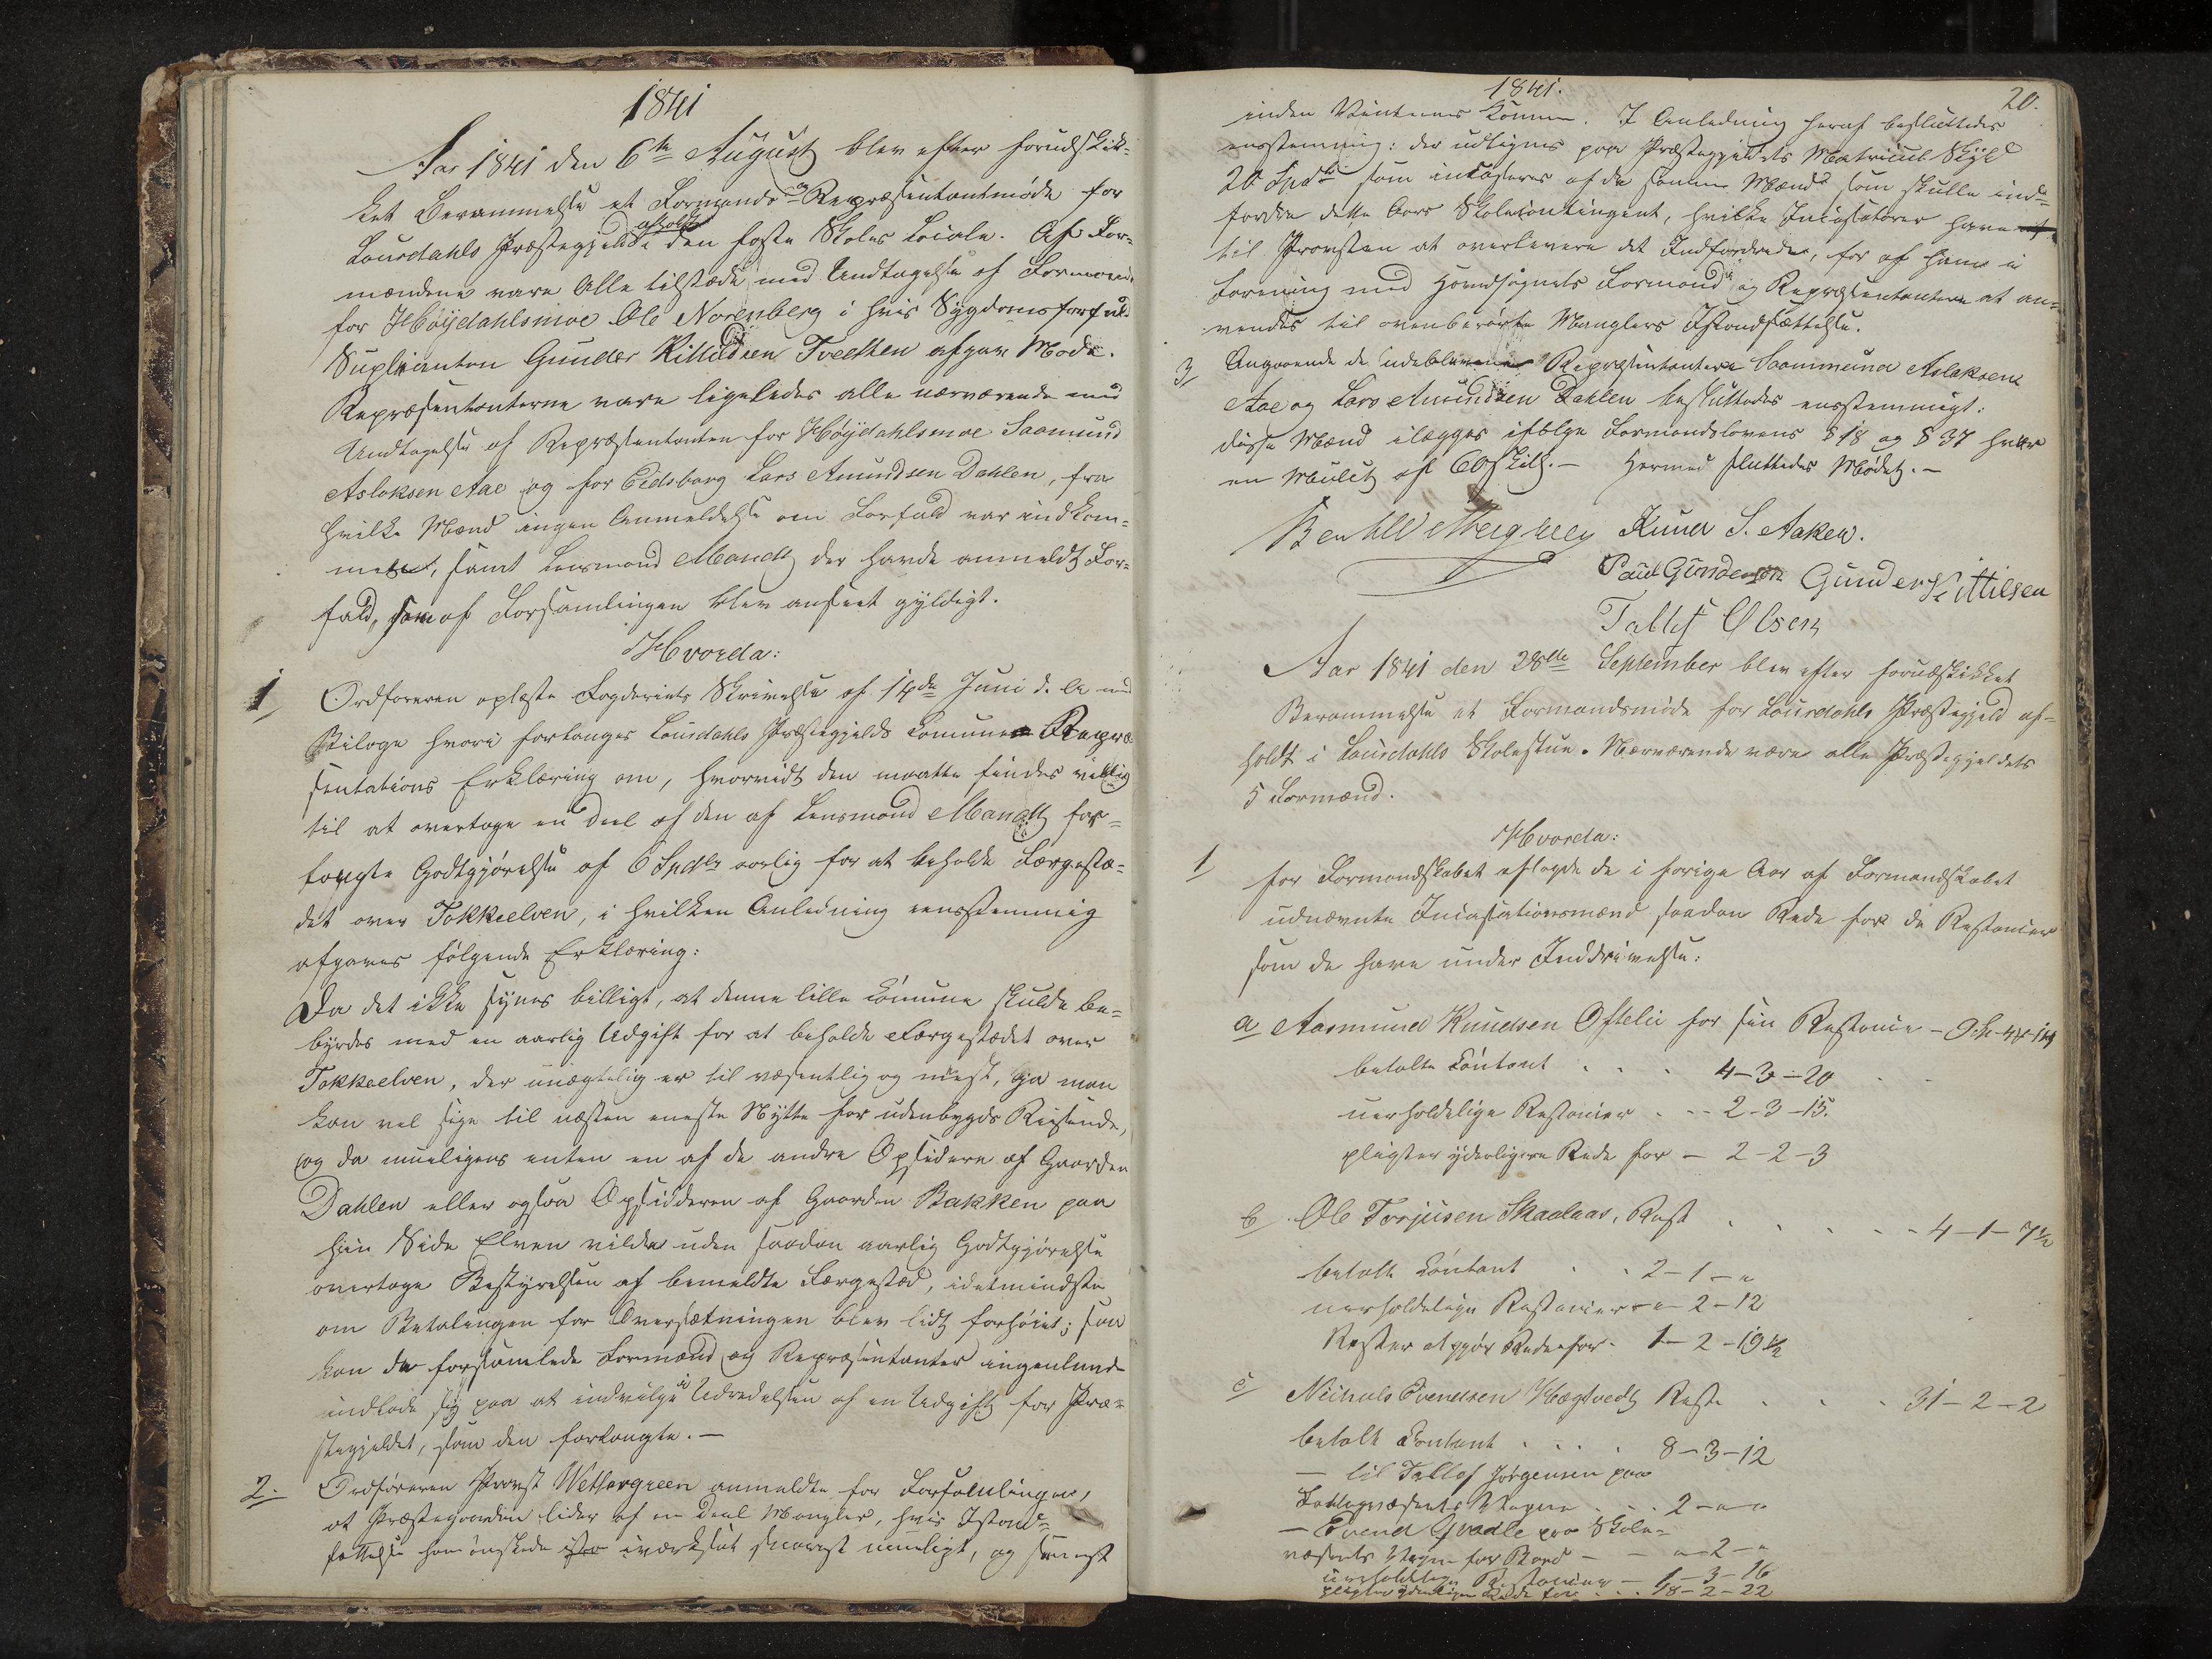 1841
Aar 1841 den 6te August blev efter forudskik-
ket Berammelse et Formands og Repræsentantmøde for
Lousdahls Præstegjeld afholdt i den faste Skoles Locale. Af For-
mændene vare Alle tilstæde med Undtagelse af Formanden
for Høydahlsmoe Ole Norenberg i hvis Sygdomsforfald
Suplianten Gunder Kittilsen Tveethen afgav Møde.
Repræsentanterne vare ligeledes alle nærværende med
Undtagelse af Repræsentanten for Høydahlsmoe Saamund
Aslaksen Aae og for Eidsborg Lars Amundsen Dahlen, fra
hvilke Mænd ingen Anmeldelse om Forfald var indkom-
met, samt Lensmand Mandt der havde anmeldt For-
fald, som af Forsamlingen blev anseet gyldigt.
Hvorda:
1 Ordføreren oplæste Fogderiets Skrivelse af 14de Juni d. A. med
Bilage hvori forlanges Lousdahls Præstegjelds Communes Repræ-
sentations Erklæring om, hvorvidt den maatte findes villig
til at overtage en Deel af den af Lensmand Mandt for-
langte Godtgjørelse af 6 Spdlr aarlig for at beholde Færgestæ-
det over Tokkeelven, i hvilken Anledning eensstemmig
afgaves følgende Erklæring:
Da det ikke synes billigt, at denne lille Comune skulde be-
byrdes med en aarlig Udgift for at beholde Færgestædet over
Tokkeelven, der unægtelig er til væsentlig og mest, ja man
kan vel sige til næsten eneste Nytte for udenbygds Reisende,
og da mueligens enten en af de andre Opsidere af Gaarden
Dahlen eller ogsaa Opsidderen af Gaarden Bakken paa
hiin Side Elven vilde uden saadan aarlig Godtgjørelse
overtage Bestyrelsen af bemeldte Færgestæd, idetmindste
om Betalingen for Oversætningen blev lidt forhøiet; saa
kan de forsamlede Formænd og Repræsentanter ingenlunde
indlade sig paa at indvilge i Udredelsen af en Udgift for Præ-
stegjeldet, som den forlangte. —
2. Ordføreren Provst Wettergreen anmeldte for Forsamlingen,
at Præstegaarden lider af en Deel Mangler, hvis Istand-
sættelse han ønskede iværksat snarest mueligt, og senest
1841. 20.
inden Vinterens Komme. I Anledning heraf besluttedes
eensstemmig: der udlignes paa Præstegjeldets Matricul Skyld
20 Spdlr som incasseres af de samme Mænd som skulle ind-
fordre dette Aars Skolecontingent, hvilke Incassatorer have
til Provsten at overlevere det Indfordrede, for af ham i
Forening med Hovedsognets Formænd og Repræsentantere at an-
vendes til ovenberørte Manglers Istandsættelse.
3 Angaaende de udeblevne Repræsentantere Saamund Aslaksen
Aae og Lars Amundsen Dahlen besluttedes eensstemmigt:
disse Mænd ilægges ifølge Formandslovens § 18 og § 37 hver
en Mulct af 60 skill. — Hermed sluttedes Mødet. —
Knud S. Aaken.
Paul Gunderson Gunder Kittilsen
Tallef Olsen
Aar 1841 den 28de September blev efter forudskikket
Berammelse et Formandsmøde for Lousdahls Præstegjeld af-
holdt i Lousdahls Skolestue. Nærværende være alle Præstegjeldets
5 Formænd.
Hvorda:
1 for Formandskabet aflagde de i forige Aar af Formandskabet
udnævnte Incassationsmænd saadan Rede for de Restancer
som de have under Inddrivelse:
a Aasmund Knudsen Oftelie for sin Restance
betalte Contant . . . 4-3-20
uerholdelige Restancer . -- 2-3-15.
pligter yderligere Rede for — 2-2-3
b Ole Torjusen Skaalaas, Rest . . . . 4-1-7½
betalt Contant . . 2-1-"
uerholdelige Restancer "-2-12
Rester at gjøre Rede for - 1-2-19½
c Nichuls Evendsen Hægtvedt Reste . . . 31-2-2
betalt Contant . . . 8-3-12
— til Tallef Jørgensen paa
Fattigvæsenets Vegne . . . 2-"-"
— Evend Qvaale paa Skole-
væsenets Vegne for Bord — — "-2-"
uerholdelige Restancer — 1-3-16
pligter yderligere Rede for . . . 18-2-22